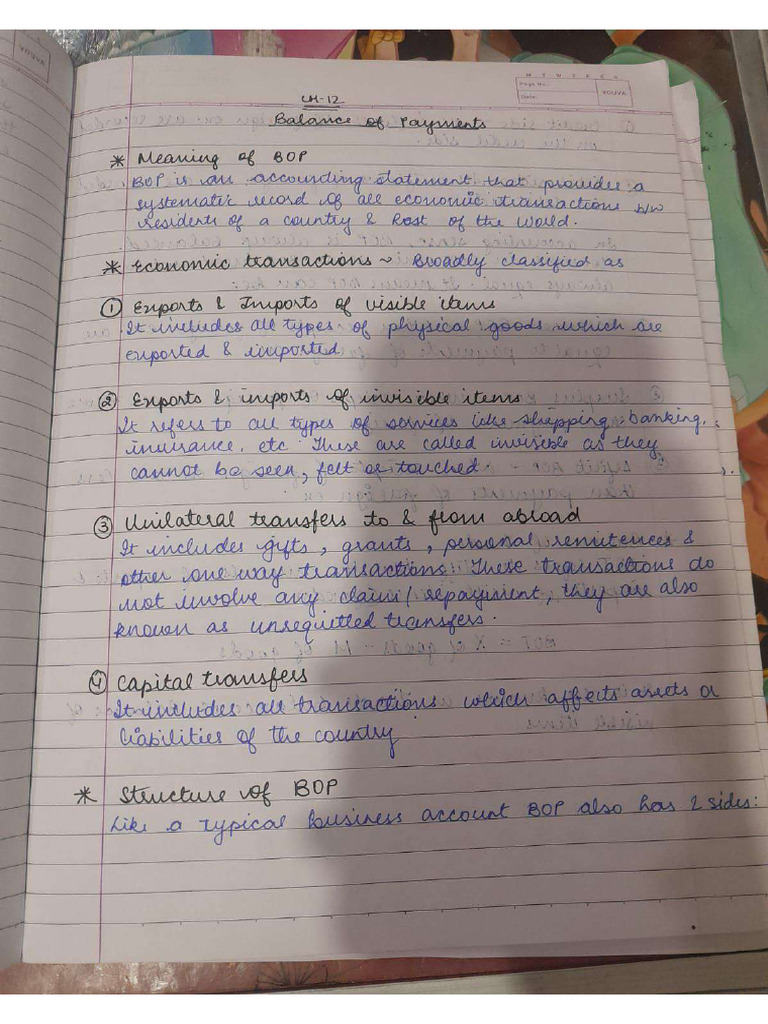 YOUVA
M T W T F S S
Page No.:
Date:
YOUVA
CH-12
Balance of Payments
* Meaning of BOP
BOP is an accounting statement that provides a
systematic record of all economic transactions b/w
residents of a country & Rest of the World.
* Economic transactions ~ Broadly classified as
① Exports & Imports of visible items
It includes all types of physical goods which are
exported & imported
② Exports & imports of invisible items
It refers to all types of services like shipping, banking,
insurance, etc These are called invisible as they
cannot be seen, felt or touched.
③ Unilateral transfers to & from abroad
It includes gifts, grants, personal remitences &
other one way transactions. These transactions do
not involve any claim/repayment, they are also
known as unrequitted transfers.
④ Capital transfers
It includes all transactions which affects assets or
liabilities of the country
* Structure of BOP
Like a typical business account BOP also has 2 sides: